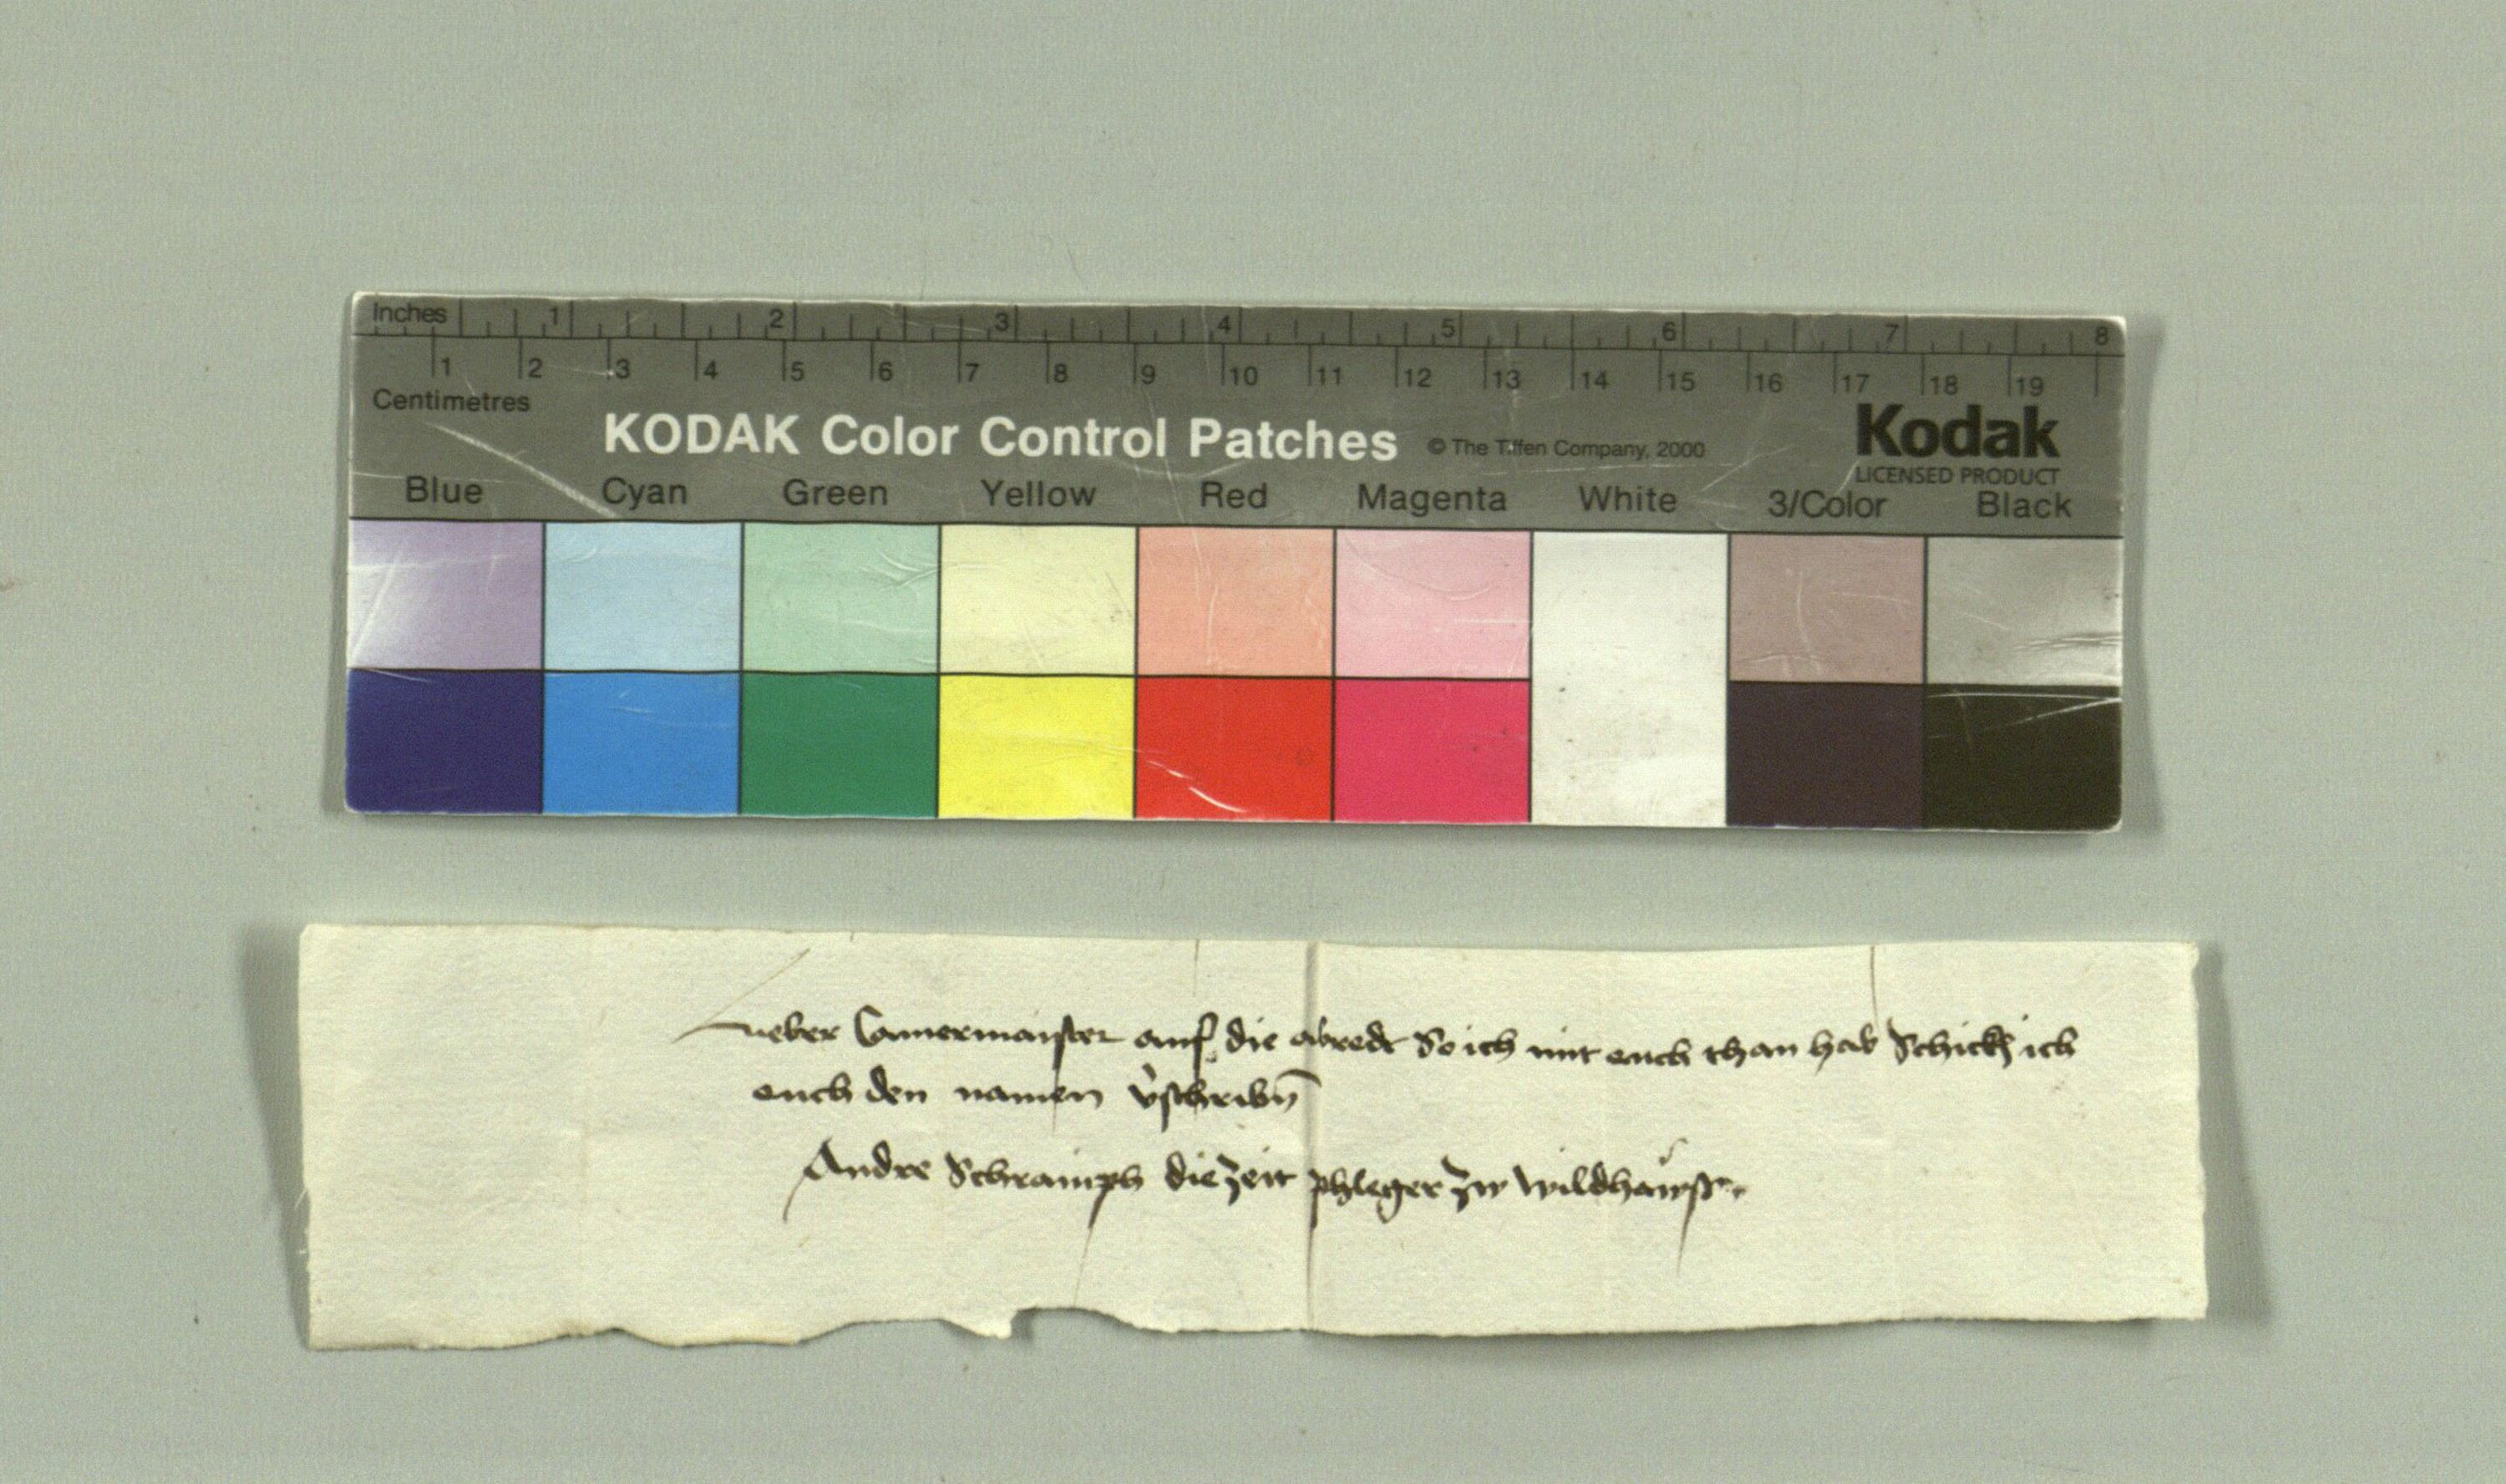 Inches 1 2 3 4 5 6 7 8
1 2 3 4 5 6 7 8 9 10 11 12 13 14 15 16 17 18 19
Centimetres
KODAK Color Control Patches © The Tiffen Company, 2000 Kodak
LICENSED PRODUCT
Blue Cyan Green Yellow Red Magenta White 3/Color Black
Lieber Camermaister auf die abredt So ich mit euch than hab Schickh ich
euch den namen v̀schribn̄
Andre Schramph die zeit phleger zw wildhaws